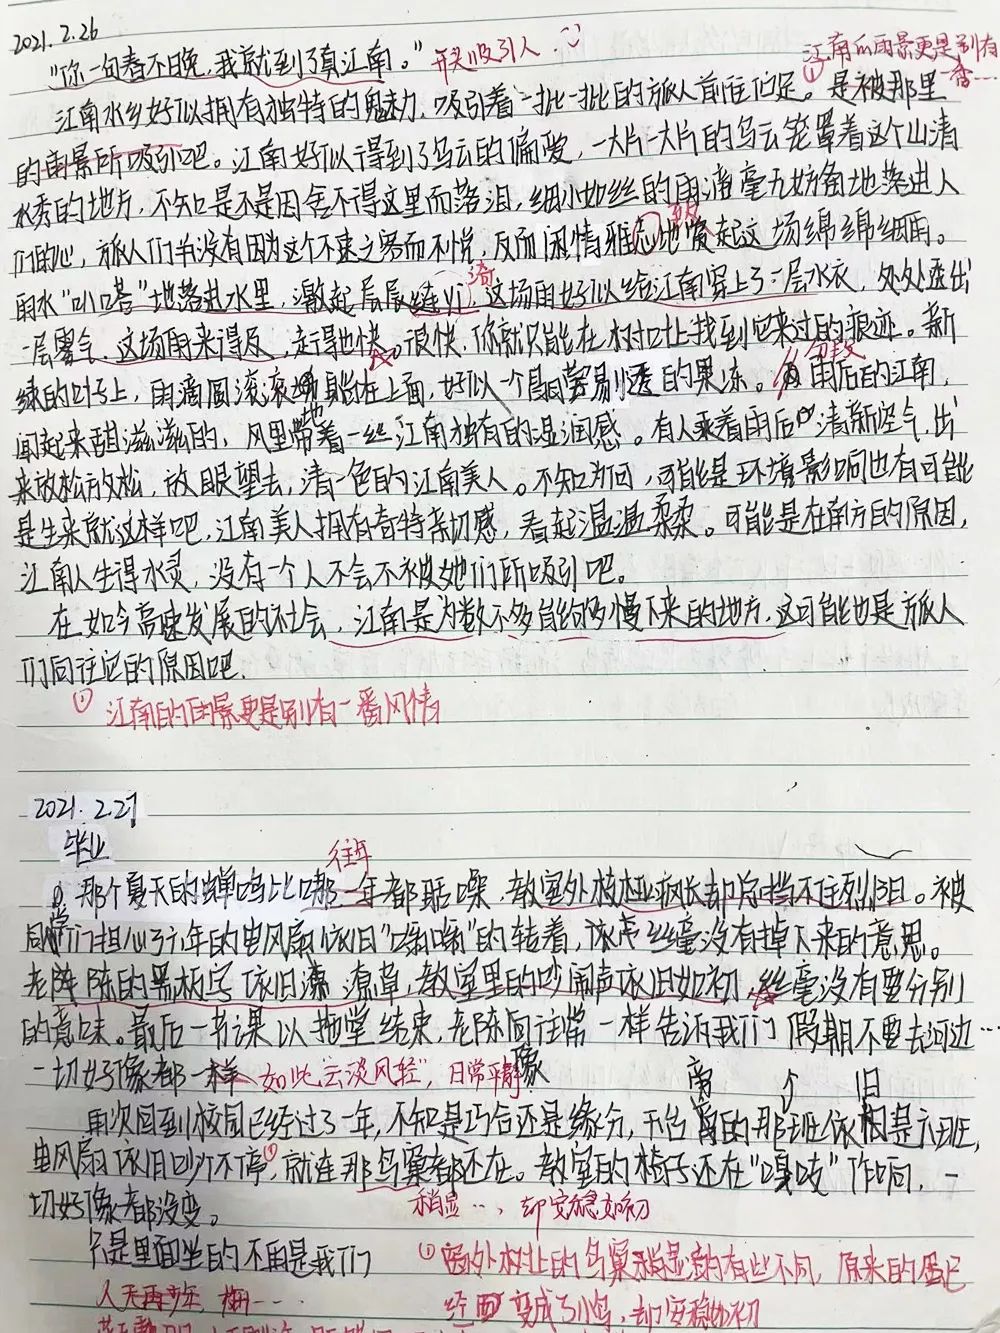 2021.2.26
"你一句春不晚,我就到了真江南。" 开头吸引人
江南的雨景更是别有
①一番…
江南水乡好似拥有独特的魅力,吸引着一批一批的旅人前往伫足。是被那里
的雨景所吸引吧。江南好似得到了乌云的偏爱,一大片一大片的乌云笼罩着这个山清
水秀的地方,不知是不是因舍不得这里而落泪,细小如丝的雨滴毫无妨备地落进人
致
们的心,旅人们并没有因为这个不速之客而不悦,反而闲情雅志地赏起这场绵绵细雨。
漪
雨水"叭嗒"地落进水里,激起层层涟yi,这场雨好似给江南穿上了一层水衣,处处透出
一层雾气,这场雨来得及,走得也快。很快,你就只能在树叶上找到它来过的痕迹。新
分段
绿的叶上,雨滴圆滚滚地躺在上面,好似一个晶莹剔透的果冻。雨后的江南,
闻起来甜滋滋的,风里带着一丝江南独有的湿润感。有人乘着雨后的清新空气,出
来放松放松,放眼望去,清一色的江南美人。不知为何,可能是环境影响也有可能
是生来就这样吧,江南美人拥有奇特亲切感,看起温温柔柔。可能是在南方的原因,
江南人生得水灵,没有一个人不会不被她们所吸引吧。
在如今高速发展的社会,江南是为数不多能够慢下来的地方,这可能也是旅人
们向往它的原因吧.
① 江南的雨景更是别有一番风情
2021.2.27
毕业
往年
那个夏天的蝉鸣比哪一年都聒噪,教室外枝桠疯长却总挡不住烈日。被
同学们担心了六年的电风扇依旧"嗡嗡"的转着,依旧丝毫没有掉下来的意思。
老陈的黑板字依旧潦草,教室里的吵闹声依旧如初,丝毫没有要分别
的意味。最后一节课以拖堂结束,老陈同往常一样告诉我们假期不要去河边…
一切好像都一样 如此云淡风轻",日常平静
再次回到校园已经过了一年,不知是巧合还是缘分,天台旁的那班依旧是六班,
电风扇依旧吵个不停①,就连那鸟巢都还在。教室的椅子还在"嘎吱"作响,一
切好像都没变。 稍显…,却安稳如初
只是里面坐的不再是我们
① 窗外树上的鸟巢稍显的有些不同,原来的蛋已
经变成了小鸟,却安稳如初